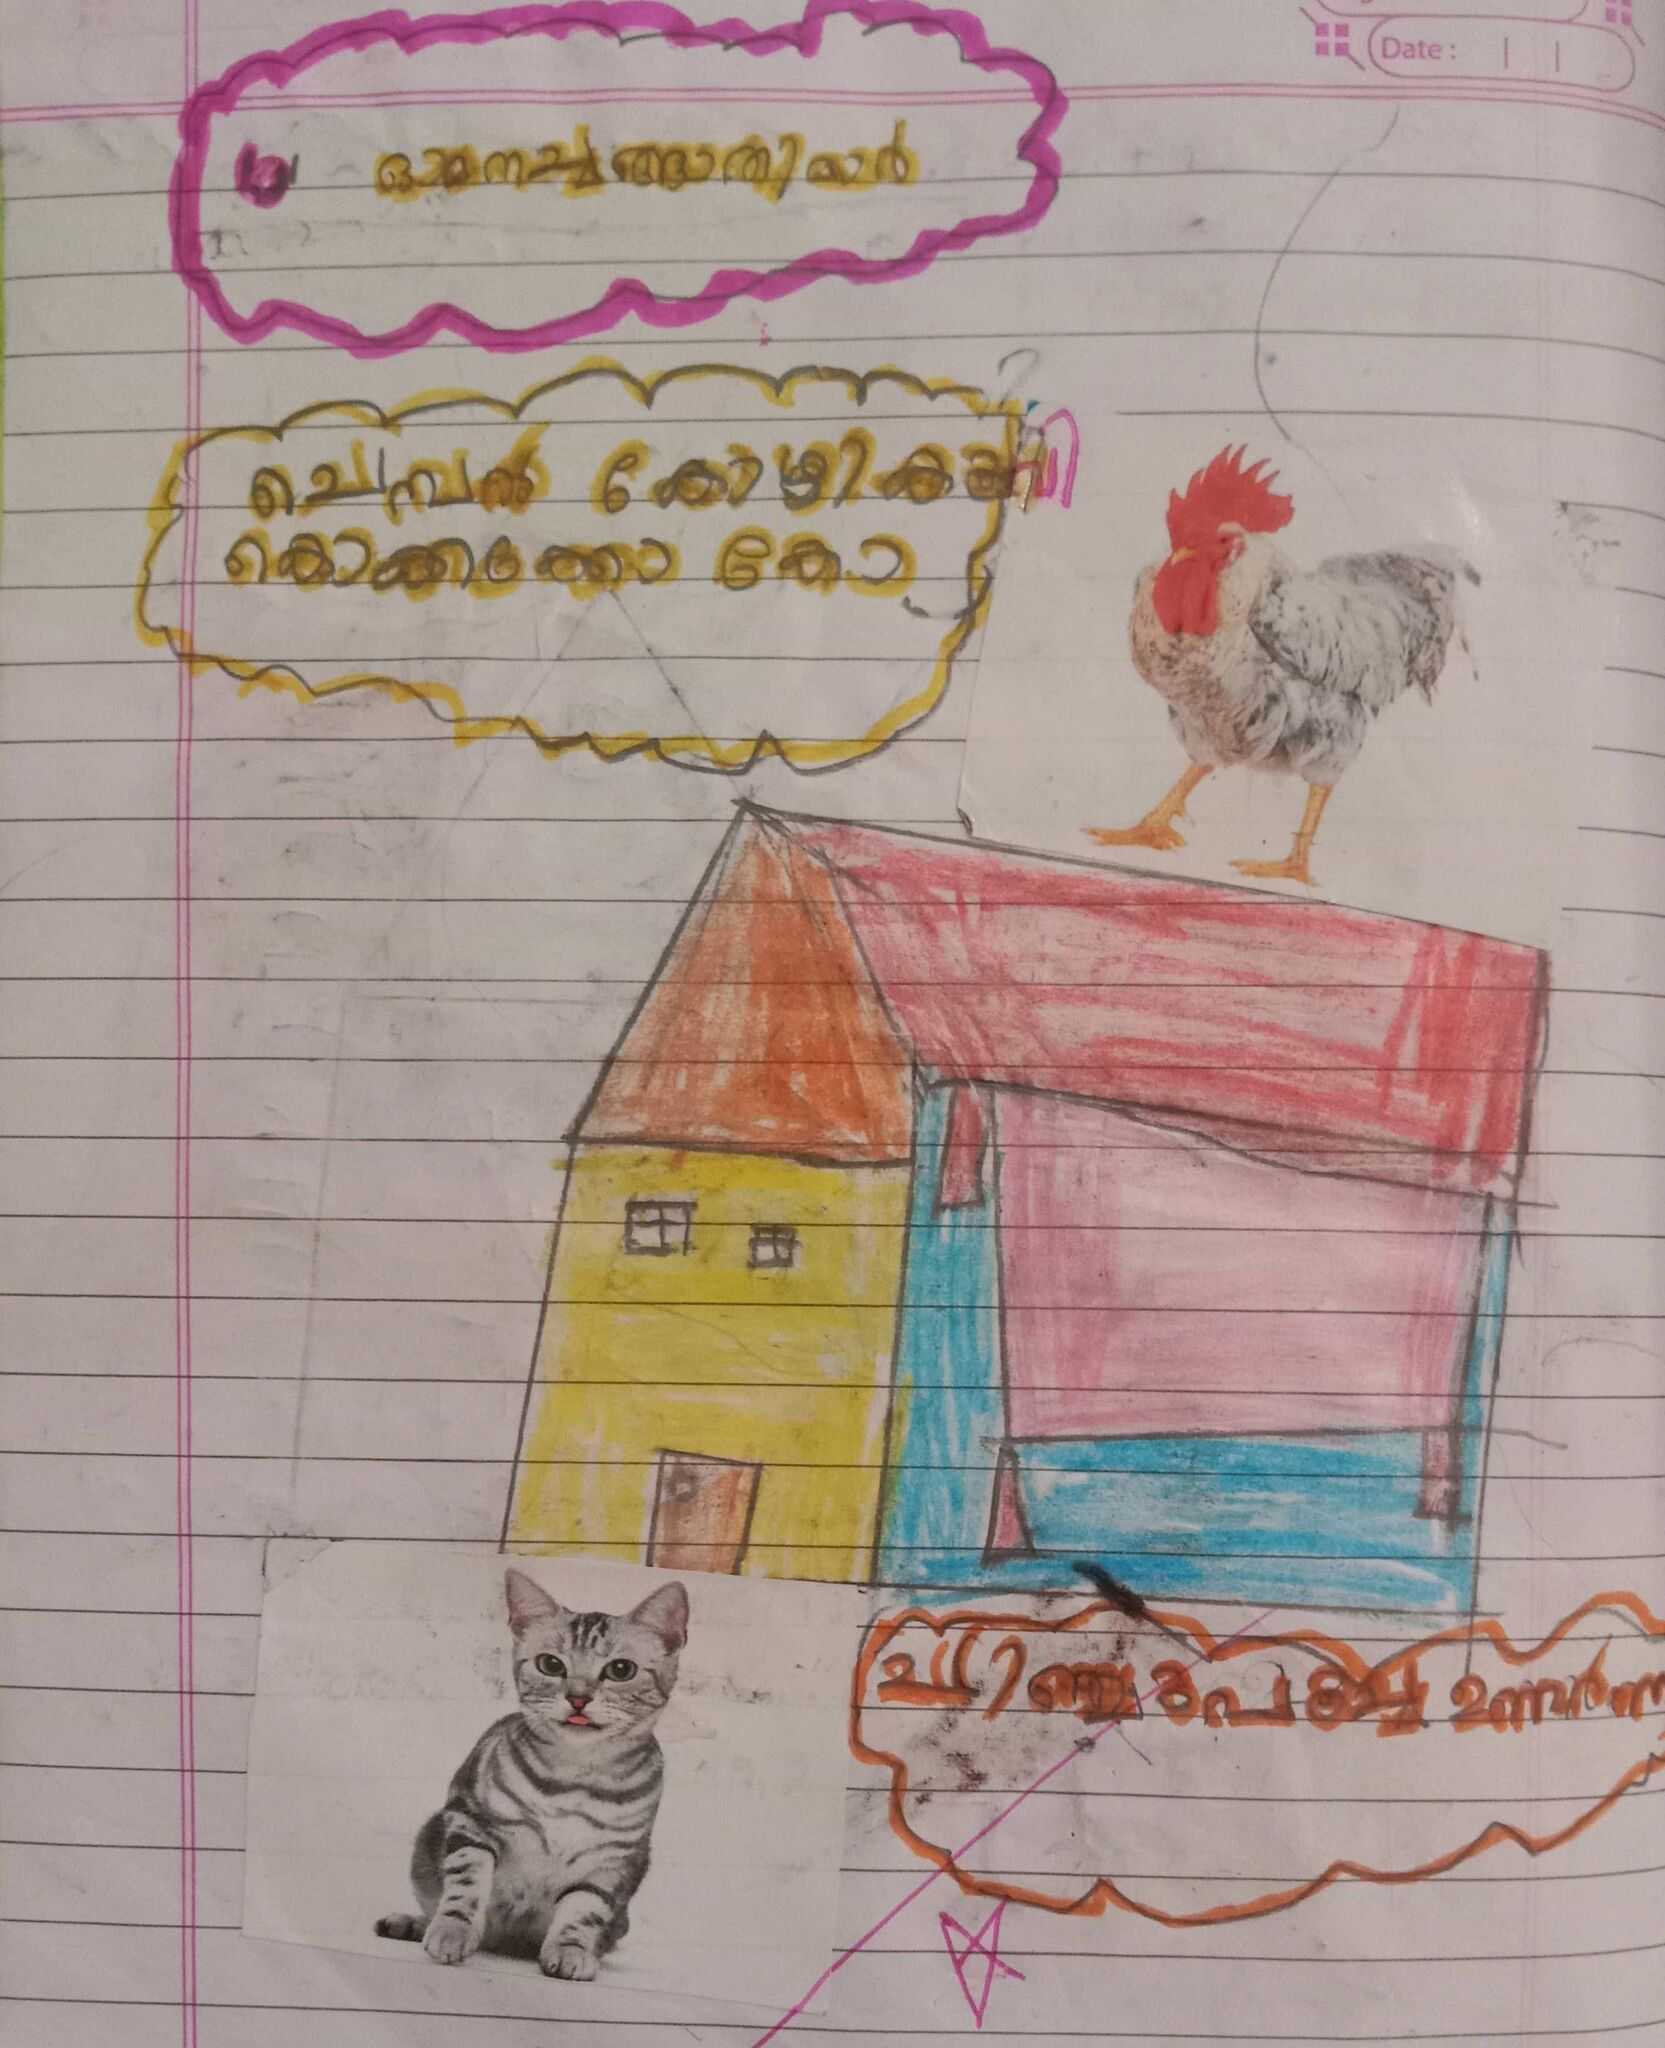 Date :
ഓമനച്ചങ്ങാതിമാർ
ചെമ്പൻ കോഴി കൂവി
കൊക്കരക്കോ കോ
കുറിഞ്ഞിപൂച്ച ഉണർന്നു